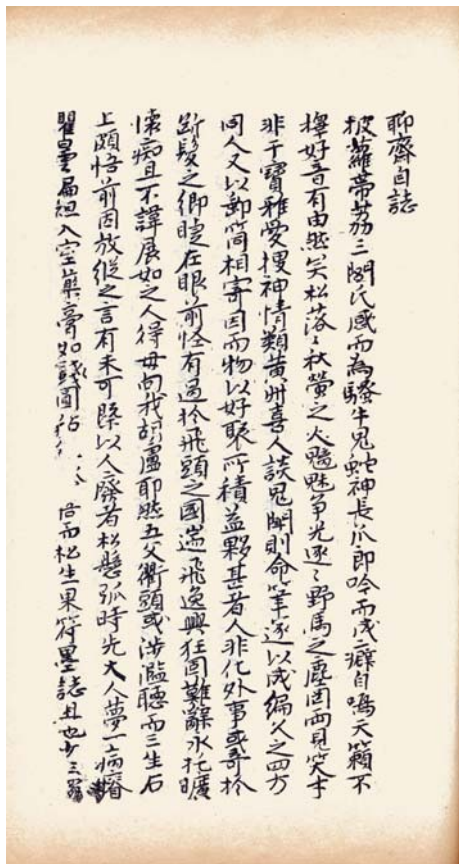 聊齋自誌
披蘿帶荔三閭氏感而為騷牛鬼蛇神長爪郎吟而成癖自鳴天籟不
擇好音有由然矣松落〻秋螢之火魑魅爭光逐〻野馬之塵罔兩見笑才
非干寶雅愛搜神情類黃州喜人談鬼聞則命筆遂以成編久之四方
同人又以郵筒相寄因而物以好聚所積益夥甚者人非化外事或奇扵
斷髮之鄉睫在眼前怪有過扵飛頭之國遄飛逸興狂固難辭永托曠
懷痴且不諱展如之人得毋向我胡盧耶然五父衢頭或涉濫聽而三生石
上頗悟前因放縱之言有未可槩以人廢者松懸弧時先大人夢一病瘠
瞿曇偏袒入室藥膏如錢圓粘 而松生果符墨誌且也少